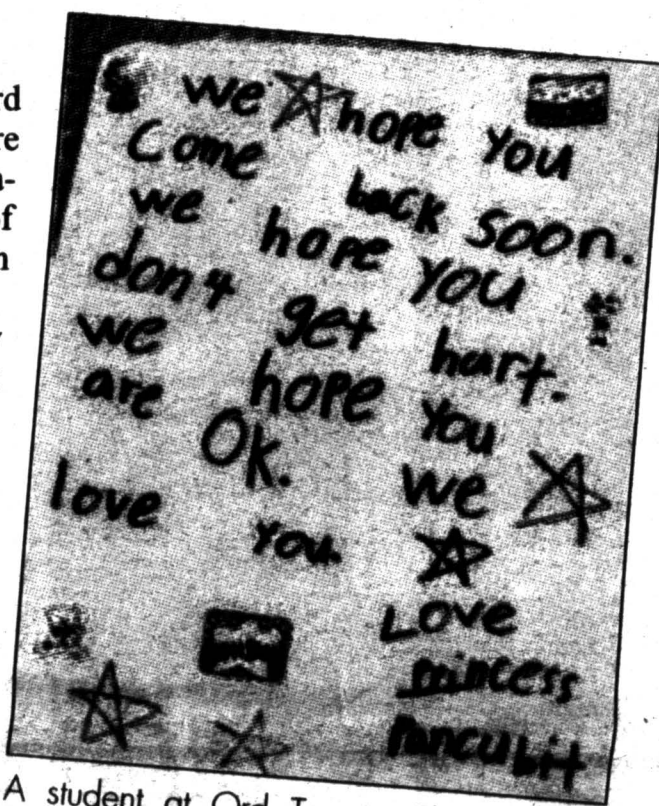 rd
re
a-
of
n
we hope you
Come back soon.
we hope you
don4 get hart.
we hope you
are Ok. we
love you.
Love
princess
A student at Ord T